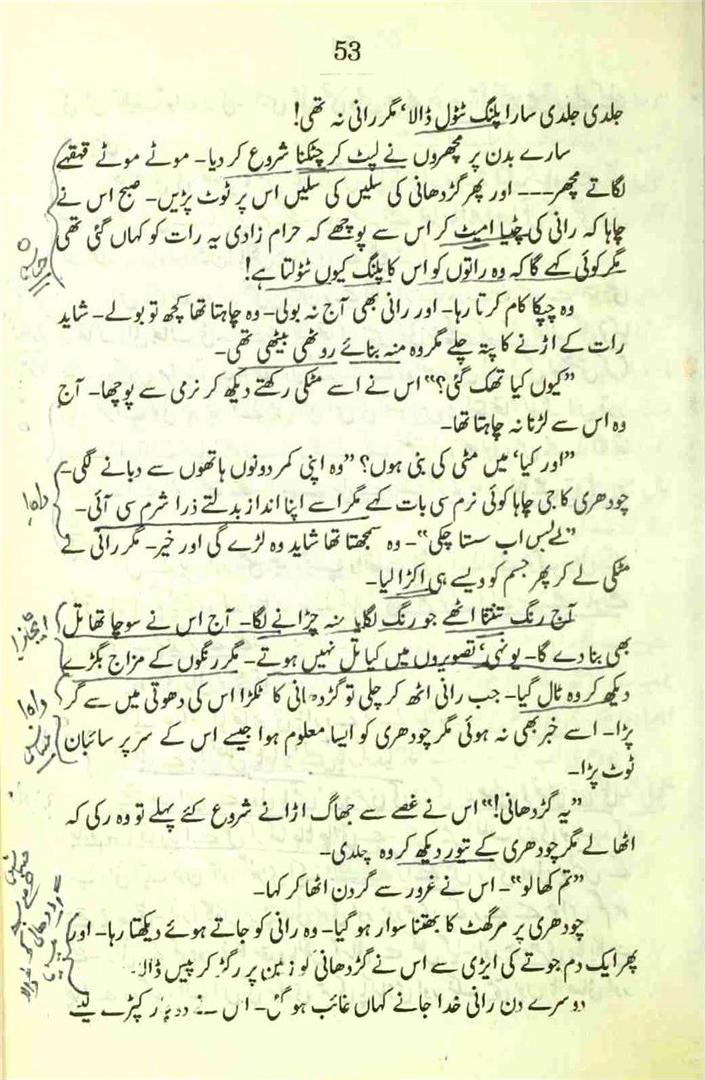 53
جلدی جلدی سارا پلنگ ٹٹول ڈالا، مگر رانی نہ تھی!
سارے بدن پر مچھروں نے لپٹ کر چٹکنا شروع کر دیا۔ موٹے موٹے قہقہے
لگاتے مچھر۔۔۔ اور پھر گڑدھانی کی سلیں کی سلیں اس پر ٹوٹ پڑیں۔ صبح اس نے
چاہا کہ رانی کی چٹیا امیٹ کر اس سے پوچھے کہ حرام زادی یہ رات کو کہاں گئی تھی
مگر کوئی کہے گا کہ وہ راتوں کو اس کا پلنگ کیوں ٹٹولتا ہے!
وہ چپکا کام کرتا رہا۔ اور رانی بھی آج نہ بولی۔ وہ چاہتا تھا کچھ تو بولے۔ شاید
رات کے اڑنے کا پتہ چلے مگر وہ منہ بنائے روٹھی بیٹھی تھی۔
”کیوں کیا تھک گئی؟“ اس نے اسے مٹکی رکھتے دیکھ کر نرمی سے پوچھا۔ آج
وہ اس سے لڑنا نہ چاہتا تھا۔
”اور کیا، میں مٹی کی بنی ہوں؟ ”وہ اپنی کمر دونوں ہاتھوں سے دبانے لگی۔
چودھری کا جی چاہا کوئی نرم سی بات کہے مگر اسے اپنا انداز بدلتے ذرا شرم سی آئی۔
”لے بس اب سستا چکی“۔ وہ سمجھتا تھا شاید وہ لڑے گی اور خیر۔ مگر رانی نے
مٹکی لے کر پھر جسم کو ویسے ہی اکڑا لیا۔
آج رنگ تنتا اٹھے جو رنگ لگایا منہ چڑانے لگا۔ آج اس نے سوچا تھا تل
بھی بنا دے گا۔ یونہی، تصویروں میں کیا تل نہیں ہوتے۔ مگر رنگوں کے مزاج بگڑے
دیکھ کر وہ ٹال گیا۔ جب رانی اٹھ کر چلی تو گڑدھانی کا ٹکڑا اس کی دھوتی میں سے گر
پڑا۔ اسے خبر بھی نہ ہوئی مگر چودھری کو ایسا معلوم ہوا جیسے اس کے سر پر سائبان
ٹوٹ پڑا۔
”یہ گڑدھانی!“ اس نے غصے سے جھاگ اڑانے شروع کئے پہلے تو وہ رکی کہ
اٹھا لے مگر چودھری کے تیور دیکھ کر وہ چلدی۔
”تم کھا لو“۔ اس نے غرور سے گردن اٹھا کر کہا۔
چودھری پر مرگھٹ کا بھتنا سوار ہو گیا۔ وہ رانی کو جاتے ہوئے دیکھتا رہا۔ اور
پھر ایک دم جوتے کی ایڑی سے اس نے گڑدھانی کو زمین پر رگڑ کر پیس ڈالا۔
دوسرے دن رانی خدا جانے کہاں غائب ہو گئی۔ اس نے دو چار کپڑے لیے